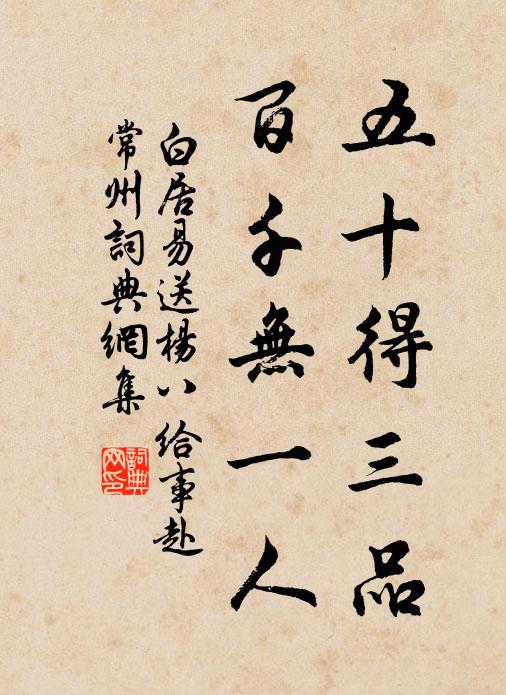 五十得三品
百千無一人
白居易送楊八給事赴
常州詞典網集
詞典
网印